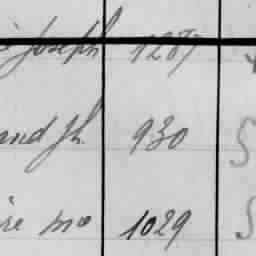 Joseph 1287
and Jh 930 5
re mo 1029 5